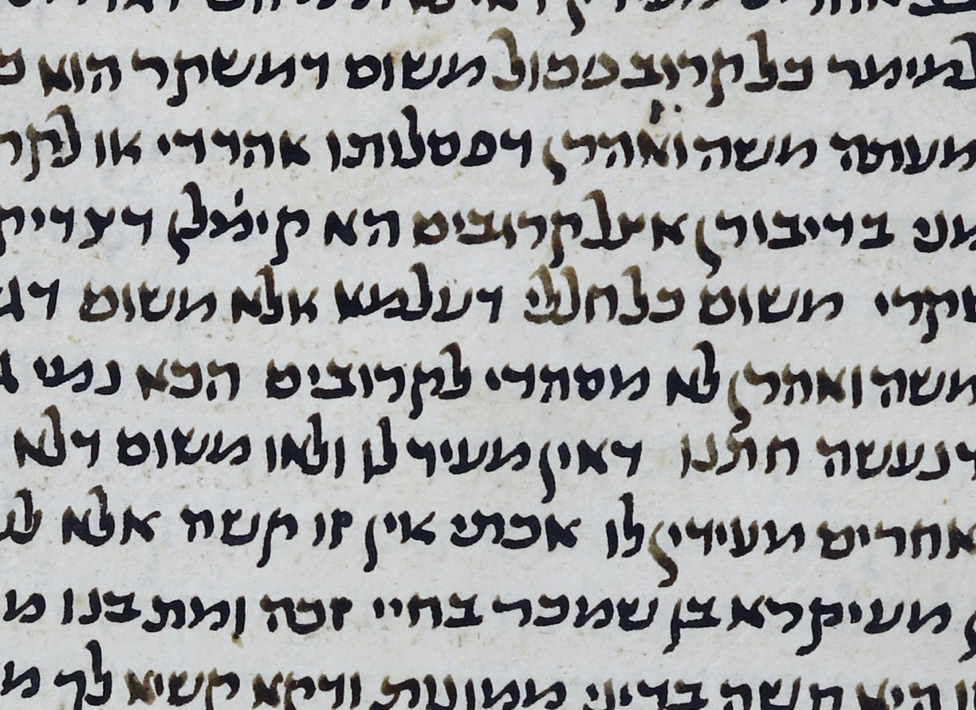 למימר כל קרוב פסול משום דמשקר הוא
מעתה משה ואהרן דפסלותו אהדדי או
בדיבורן אצל קרובים הא קימ׳לן
משום כלחללי דעלמא אלא משום
משה ואהרן לא מסהדי לקרובים הכא נמי
דנעשה חתנו דאין מעיד לו ולאו משום דלא
אחרים מעידין לו אכתי אין זו קשה אלא
מעיקרא בן שמכר בחיי זכה ומת בנו
היא קשה בדיני ממונות ודקא קשיא לך